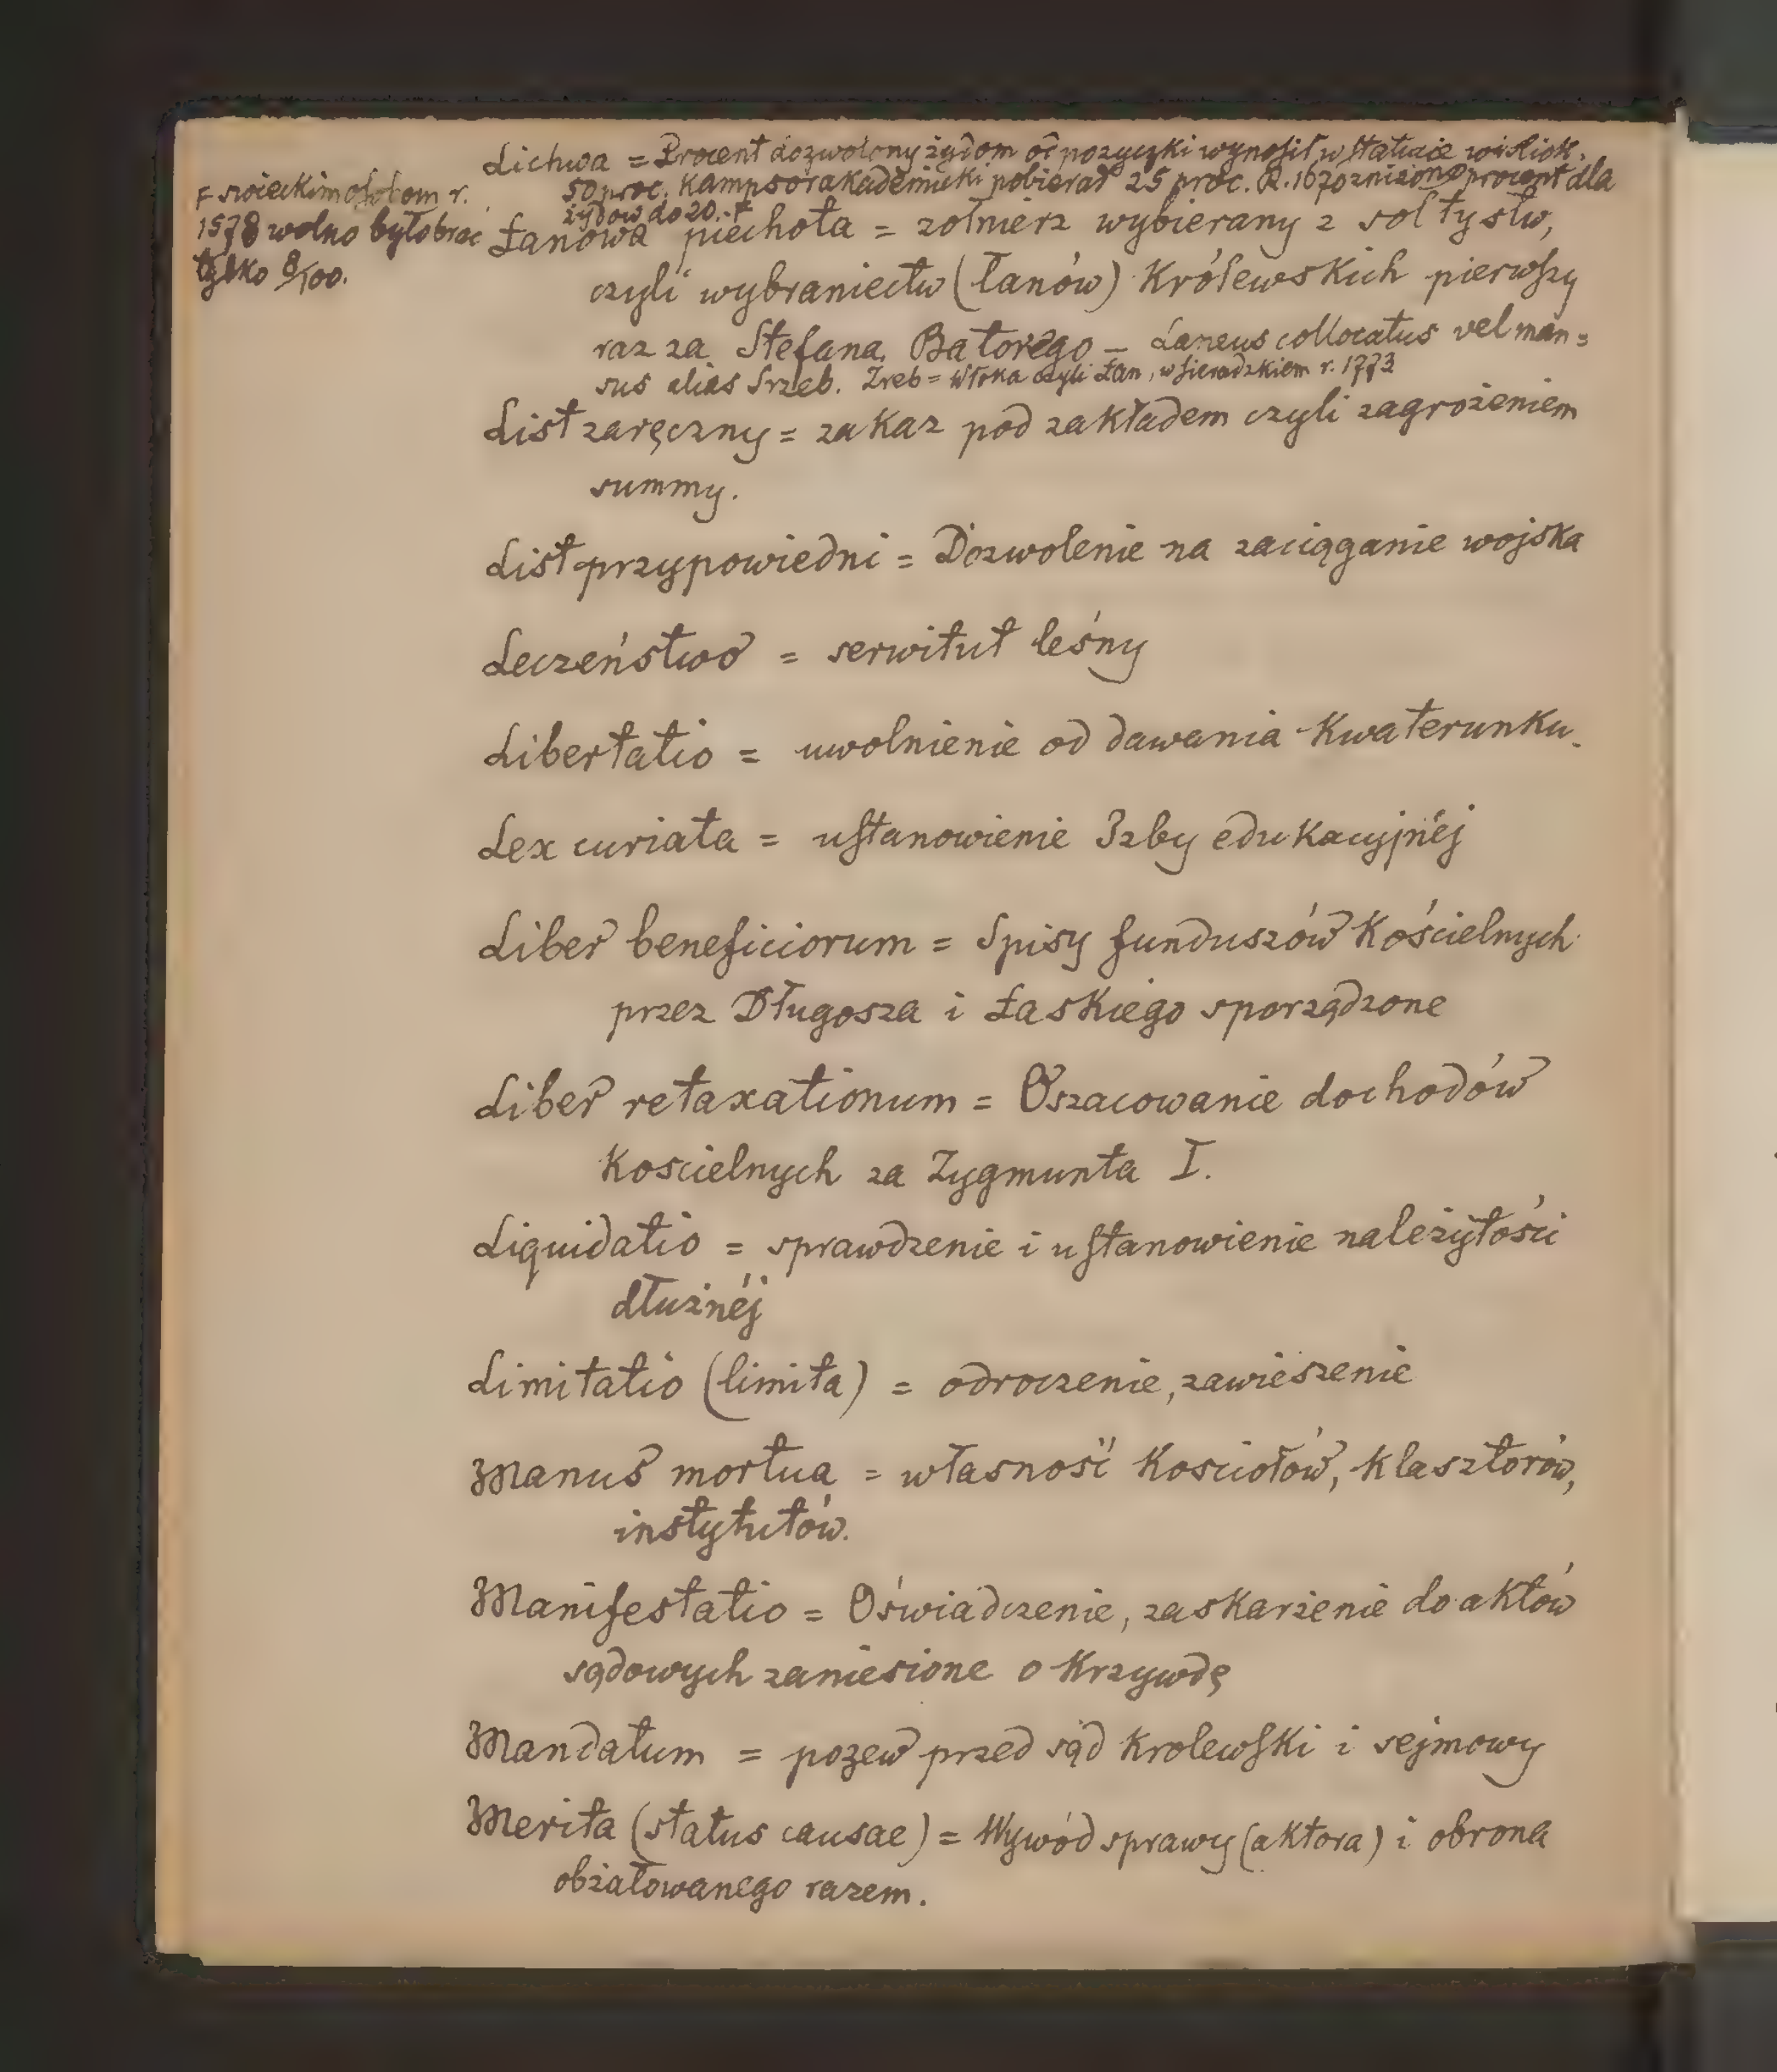 Lichwa = Procent dozwolony żydom od pozyczki wynosił w statucie wislick.
50 proc. Kampsor akademicki pobierał 25 proc. R. 1670 znizono procent dla
żydow do 20. +
+ swieckim osobom r.
1578 wolno było brać
tylko 8/100.
Łanowa piechota = zołnierz wybierany z sołtystw,
czyli wybraniectw (łanów) Królewskich pierwszy
raz za Stefana Batorego – Laneus collocatus vel man=
sus alias Srzeb. Zreb = Włoka czyli Łan, w sieradzkiem r. 1773
List zaręczny = zakaz pod zakładem czyli zagrożeniem
summy.
List przypowiedni = Dozwolenie na zaciąganie wojska
Leczeństwo = serwitut leśny
Libertatio = uwolnienie od dawania Kwaterunku.
Lex curiata = ustanowienie Izby edukacyjnéj
Liber beneficiorum = Spisy funduszów Kościelnych
przez Długosza i Łaskiego sporządzone
Liber retaxationum = Oszacowanie dochodów
Koscielnych za Zygmunta I.
Liquidatio = sprawdzenie i ustanowienie należytości
dłużnéj
Limitatio (limita) = odroczenie, zawieszenie
Manus mortua = własność Kosciołów, Klasztorów,
instytutów.
Manifestatio = Oświadczenie, zaskarżenie do aktów
sądowych zaniesione o Krzywdę
Mandatum = pozew przed sąd Krolewski i sejmowy
Merita (status causae) = Wywód sprawy (aktora) i obrona
obżałowanego razem.